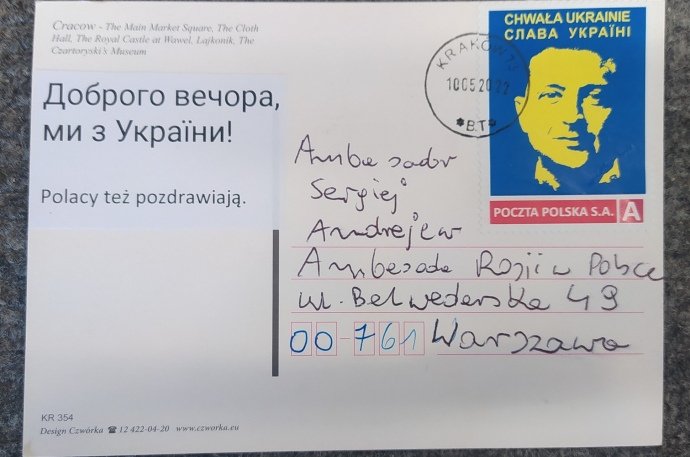 Cracow - The Main Market Square, The Cloth
Hall, The Royal Castle at Wawel, Lajkonik, The
Czartoryski's Museum
CHWAŁA UKRAINIE
СЛАВА УКРАЇНІ
KRAKÓW 73
10052022
*B.T*
POCZTA POLSKA S.A. A
Доброго вечора,
ми з України!
Polacy też pozdrawiają.
Ambasador
Sergiej
Andrejew
Ambasada Rosji w Polsce
ul. Belwederska 49
00-761 Warszawa
KR 354
Design Czwórka ☎ 12 422-04-20 www.czworka.eu